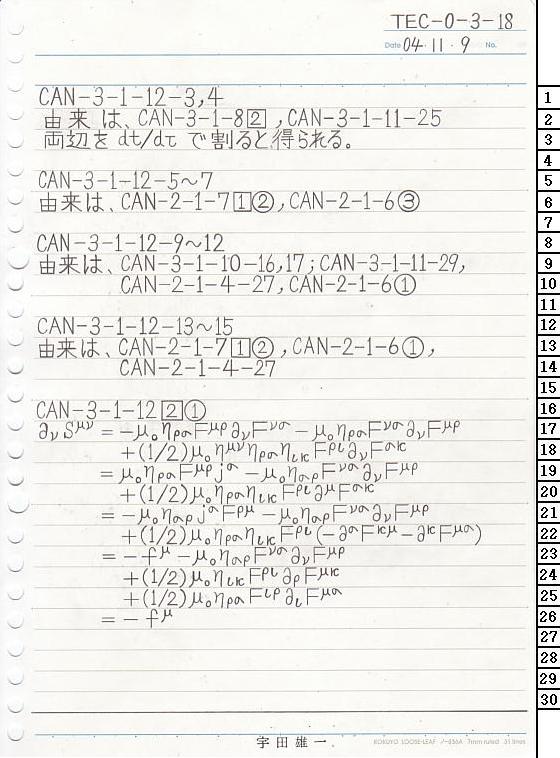 TEC-0-3-18
Date 04・11・9 No.
CAN-3-1-12-3,4
由来は、CAN-3-1-8②,CAN-3-1-11-25
両辺を dt/dτ で割ると得られる。
CAN-3-1-12-5〜7
由来は、CAN-2-1-7①②,CAN-2-1-6③
CAN-3-1-12-9〜12
由来は、CAN-3-1-10-16,17;CAN-3-1-11-29,
CAN-2-1-4-27,CAN-2-1-6①
CAN-3-1-12-13〜15
由来は、CAN-2-1-7①②,CAN-2-1-6①,
CAN-2-1-4-27
CAN-3-1-12②①
∂νS^μν = -μ₀ηρσF^μρ∂νF^νσ - μ₀ηρσF^νσ∂νF^μρ
+(1/2)μ₀η^μνηρσηικF^ρι∂νF^σκ
= μ₀ηρσF^μρj^σ - μ₀ησρF^νσ∂νF^μρ
+(1/2)μ₀ηρσηικF^ρι∂^μF^σκ
= -μ₀ησρj^σF^ρμ - μ₀ησρF^νσ∂νF^μρ
+(1/2)μ₀ηρσηικF^ρι(-∂^σF^κμ-∂^κF^μσ)
= -f^μ - μ₀ησρF^νσ∂νF^μρ
+(1/2)μ₀ηικF^ρι∂ρF^μκ
+(1/2)μ₀ηρσF^ιρ∂ιF^μσ
= -f^μ
宇田雄一
KOKUYO LOOSE-LEAF ノ-836A 7mm ruled 31 lines
1
2
3
4
5
6
7
8
9
10
11
12
13
14
15
16
17
18
19
20
21
22
23
24
25
26
27
28
29
30